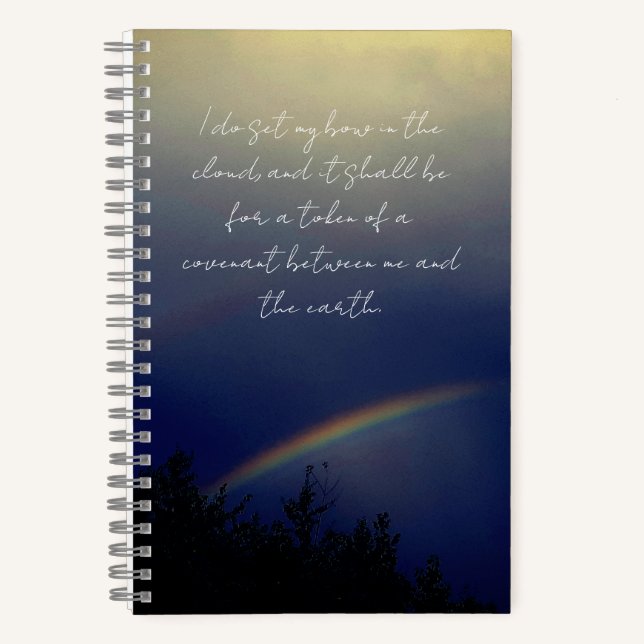 I do set my bow in the
cloud, and it shall be
for a token of a
covenant between me and
the earth.